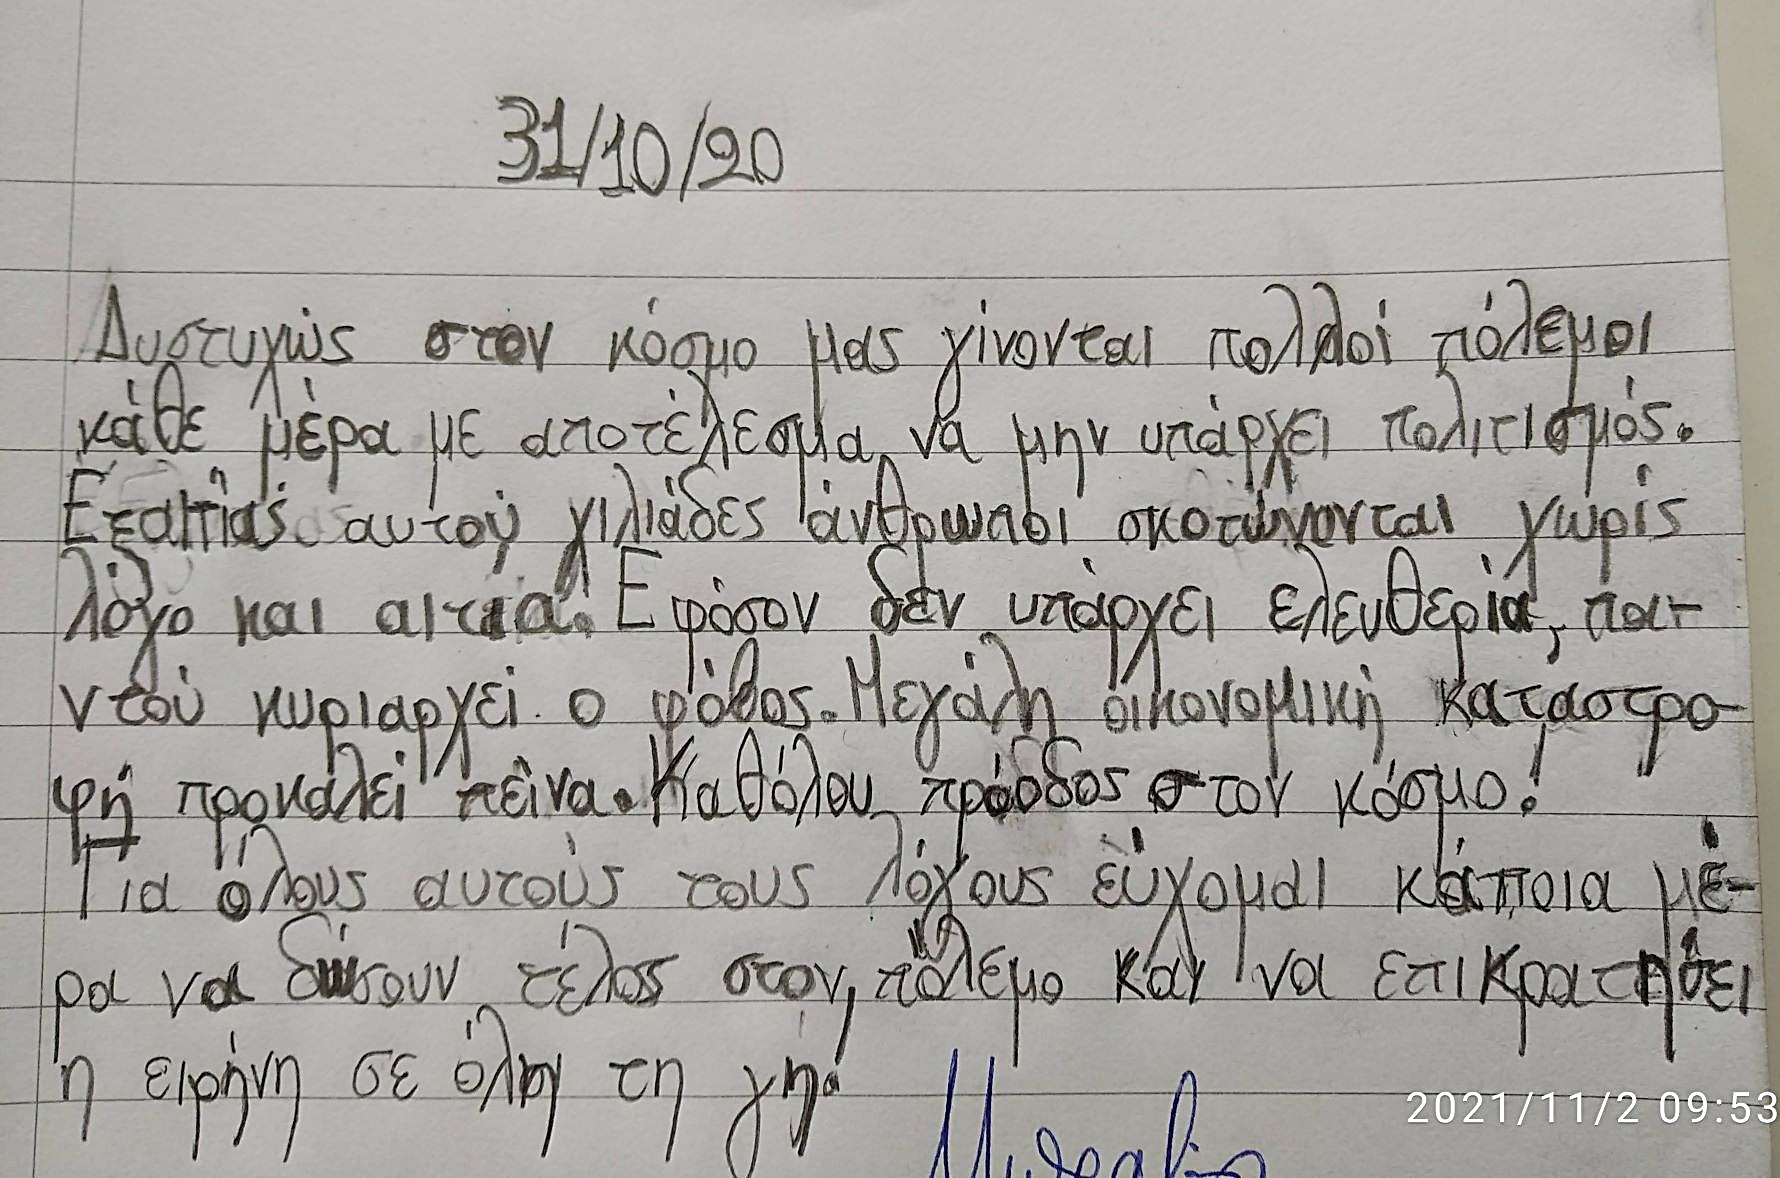 31/10/20
Δυστυχώς στον κόσμο μας γίνονται πολλοί πόλεμοι
κάθε μέρα με αποτέλεσμα να μην υπάρχει πολιτισμός.
Εξαιτίας αυτού χιλιάδες άνθρωποι σκοτώνονται χωρίς
λόγο και αιτία. Εφόσον δεν υπάρχει ελευθερία, παι-
ντού κυριαρχεί ο φόβος. Μεγάλη οικονομική καταστρο-
φή προκαλεί πείνα. Καθόλου πρόοδος στον κόσμο!
Για όλους αυτούς τους λόγους εύχομαι κάποια μέ-
ρα να δώσουν τέλος στον πόλεμο και να επικρατήσει
η ειρήνη σε όλη τη γη!
2021/11/2 09:53